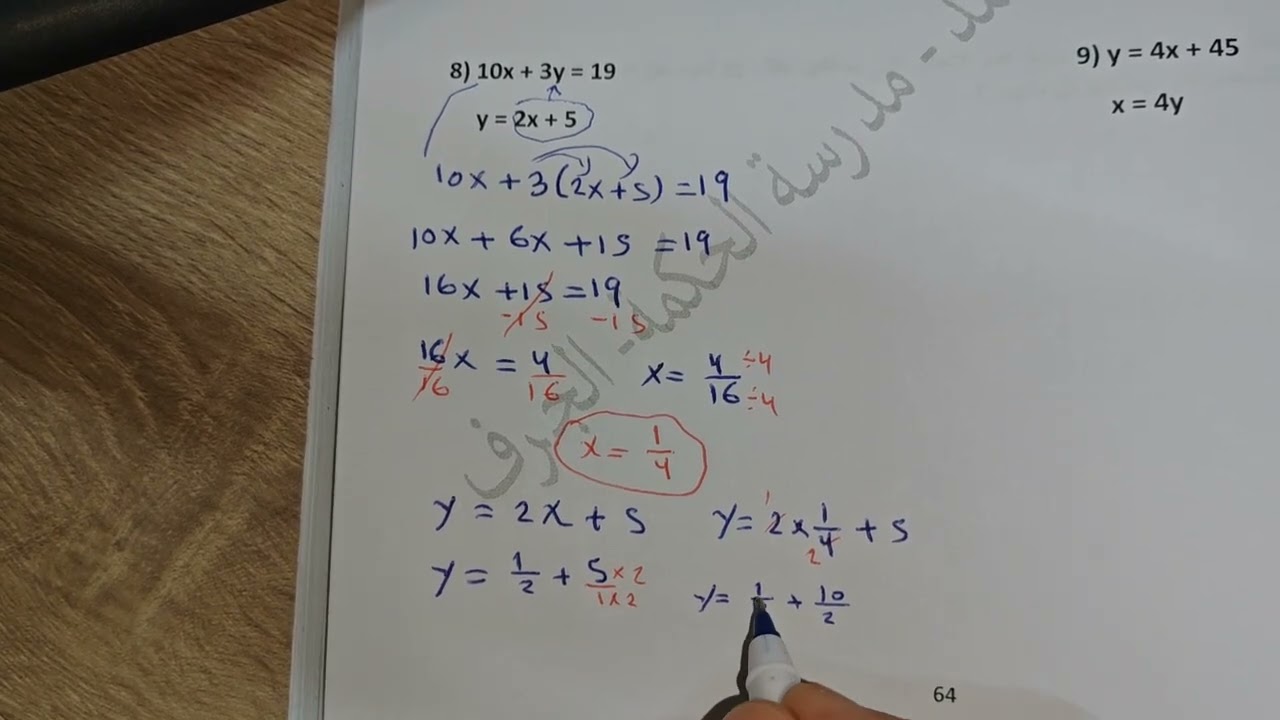 8) 10x + 3y = 19
y = 2x + 5
10x + 3(2x+5) = 19
10x + 6x + 15 = 19
16x + 15 = 19
-15 -15
16x/16 = 4/16 x = 4/16 ÷4 ÷4
x = 1/4
y = 2x + 5 y = 2 × 1/4 + 5
1 2
y = 1/2 + 5×2/1×2 y = 1/ + 10/2
9) y = 4x + 45
x = 4y
مدرسة الحكمة - الجرف
64